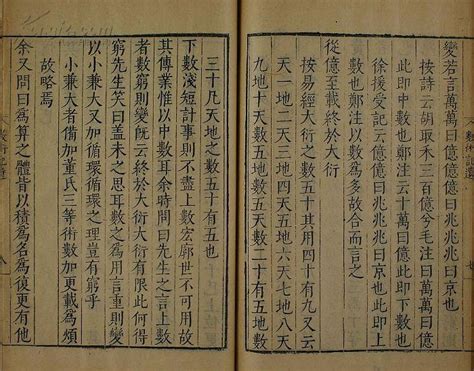 變若言萬萬曰億億億曰兆兆兆曰京也
按詩云胡取禾三百億兮毛注云萬萬曰億
此即中數也鄭注云十萬曰億此即下數也
徐援受記云億億曰兆兆兆曰京也此即上
數也鄭注以數爲多故合而言之
從億至載終於大衍
按易經大衍之數五十其用四十有九又云
天一地二天三地四天五地六天七地八天
九地十天數五地數五天數二十有五地數
三十凡天地之數五十有五也
下數淺短計事則不盡上數宏廓世不可用故
其傳業惟以中數耳余時問曰先生之言上數
者數窮則變旣云終於大衍大衍有限此何得
窮先生笑曰蓋未之思耳數之爲用言重則變
以小兼大又加循環循環之理豈有窮乎
小兼大者備加董氏三等術數加更載爲煩
故略焉
余又問曰爲算之體皆以積爲名爲復更有他